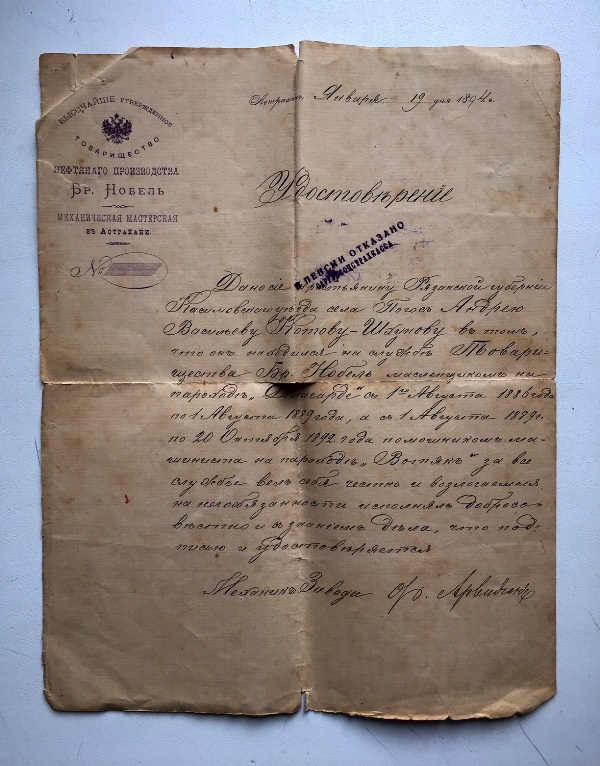 ВЫСОЧАЙШЕ УТВЕРЖДЕННОЕ
ТОВАРИЩЕСТВО
НЕФТЯНАГО ПРОИЗВОДСТВА
БР. НОБЕЛЬ
МЕХАНИЧЕСКАЯ МАСТЕРСКАЯ
ВЪ АСТРАХАНИ.
№
Астрахань, Января 19 дня 1894 г.
Удостовѣреніе
В ПЕНСИИ ОТКАЗАНО
Дано сіе крестьянину Рязанской губерніи
Касимовскаго уѣзда села Погосъ Андрею
Васильеву Котову-Шѣунову въ томъ,
что онъ находился на службѣ Товари-
щества Бр. Нобель масленщикомъ на
пароходѣ съ 1го Августа 1886 года
по 1 Августа 1889 года, а съ 1 Августа 1889 г.
по 20 Октября 1892 года помошникомъ ма-
шиниста на пароходѣ „Вотякъ" за все
службы велъ себя честно и возлогаемыя
на него обязанности исполнялъ добросо-
вѣстно и съ знаніемъ дѣла, что под-
писью и удостовѣряется
Механикъ Завода